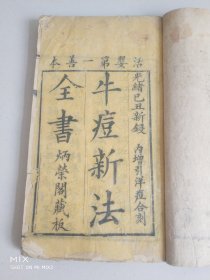 活嬰第一善本
光緒己丑新鐫 內增引洋痘合刻
牛痘新法
全書
炳榮閣藏板